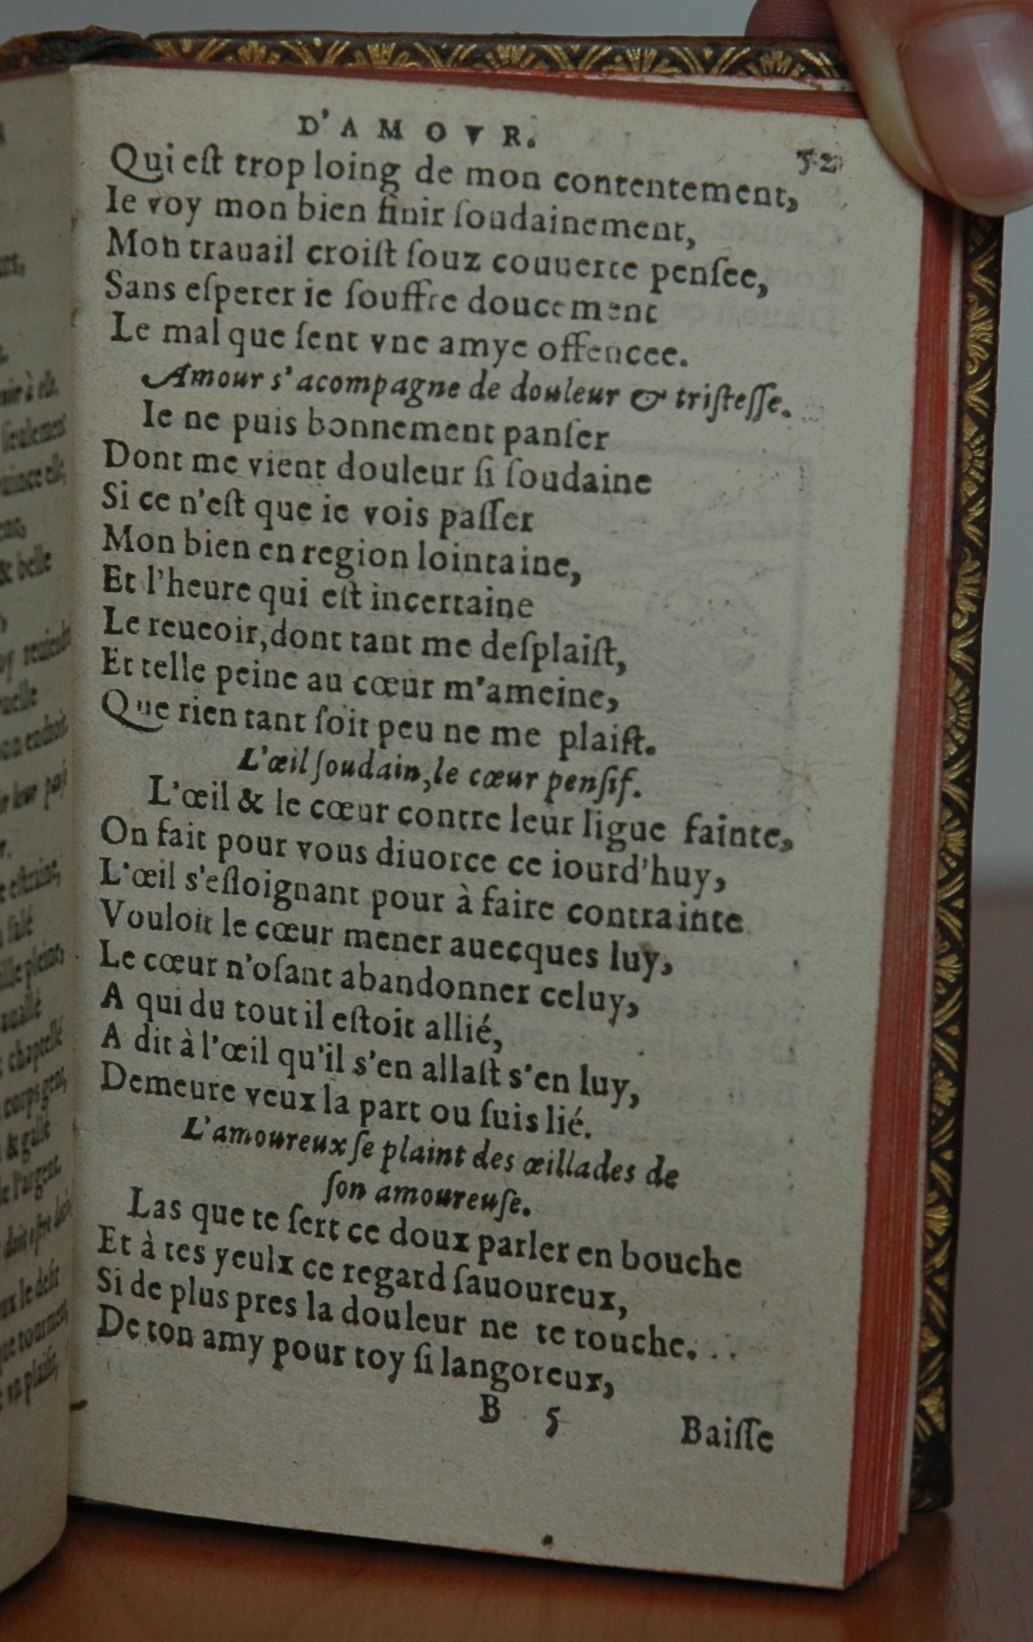 D'AMOVR.
52
Qui eſt trop loing de mon contentement,
Ie voy mon bien finir ſoudainement,
Mon trauail croiſt ſouz couuerte penſee,
Sans eſperer ie ſouffre doucement
Le mal que ſent vne amye offencee.
Amour s'acompagne de douleur & triſteſſe.
Ie ne puis bonnement panſer
Dont me vient douleur ſi ſoudaine
Si ce n'eſt que ie vois paſſer
Mon bien en region lointaine,
Et l'heure qui eſt incertaine
Le reueoir, dont tant me deſplaiſt,
Et telle peine au cœur m'ameine,
Que rien tant ſoit peu ne me plaiſt.
L'œil ſoudain, le cœur penſif.
L'œil & le cœur contre leur ligue fainte,
On fait pour vous diuorce ce iourd'huy,
L'œil s'eſloignant pour à faire contrainte
Vouloit le cœur mener auecques luy,
Le cœur n'oſant abandonner celuy,
A qui du tout il eſtoit allié,
A dit à l'œil qu'il s'en allaſt s'en luy,
Demeure veux la part ou ſuis lié.
L'amoureux ſe plaint des œillades de
ſon amoureuſe.
Las que te ſert ce doux parler en bouche
Et à tes yeulx ce regard ſauoureux,
Si de plus pres la douleur ne te touche.
De ton amy pour toy ſi langoreux,
B 5
Baiſſe